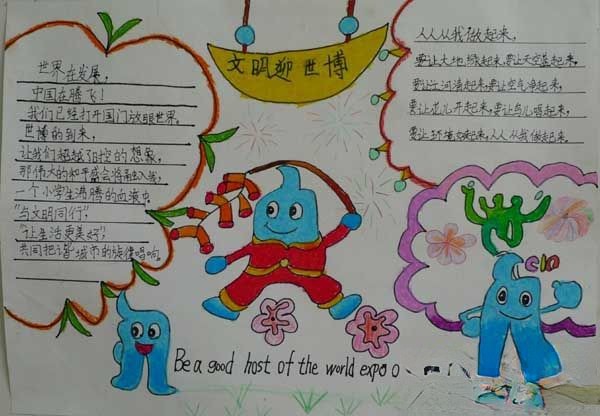 文明迎世博
世界在发展,
中国在腾飞!
我们已经打开国门放眼世界,
世博的到来,
让我们超越时空的想象,
那伟大的和平盛会将融入每
一个小学生沸腾的血液中
"与文明同行"
"让生活更美好"
共同把谐城市的旋律唱响
人人从我做起来,
要让大地绿起来,要让天空蓝起来,
要让江河清起来,要让空气净起来,
要让花儿开起来,要让鸟儿唱起来,
要让环境起来,人人从我做起来.
Be a good host of the world expo o